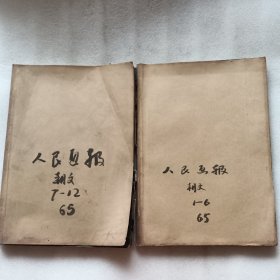 人民画报
朝文
7-12
65
人民画报
朝文
1-6
65